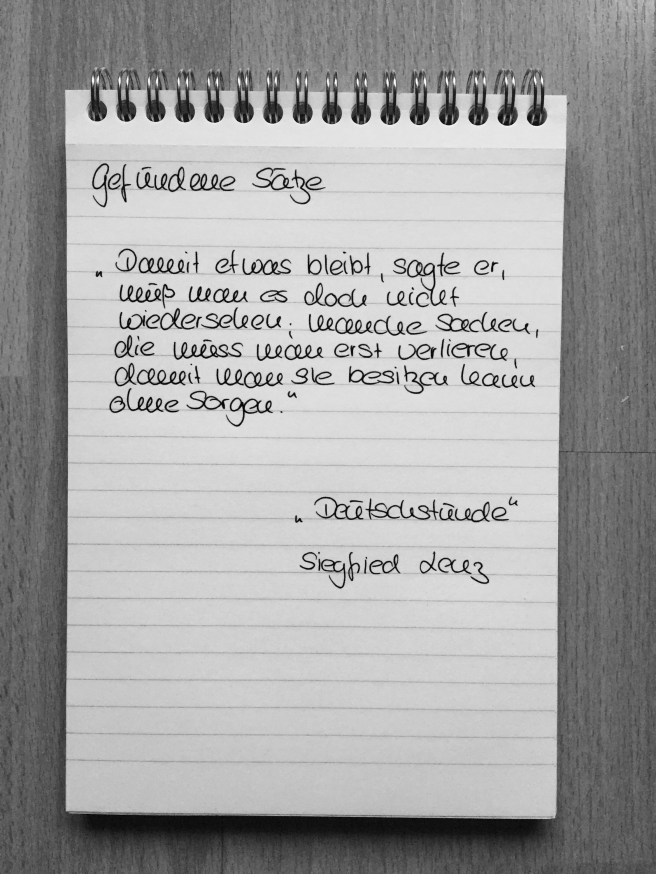 Gefundene Sätze
„Damit etwas bleibt, sagte er,
muß man es doch nicht
wiedersehen; manche Sachen,
die muss man erst verlieren,
damit man sie besitzen kann
ohne Sorgen."
„Deutschstunde"
Siegfried Lenz